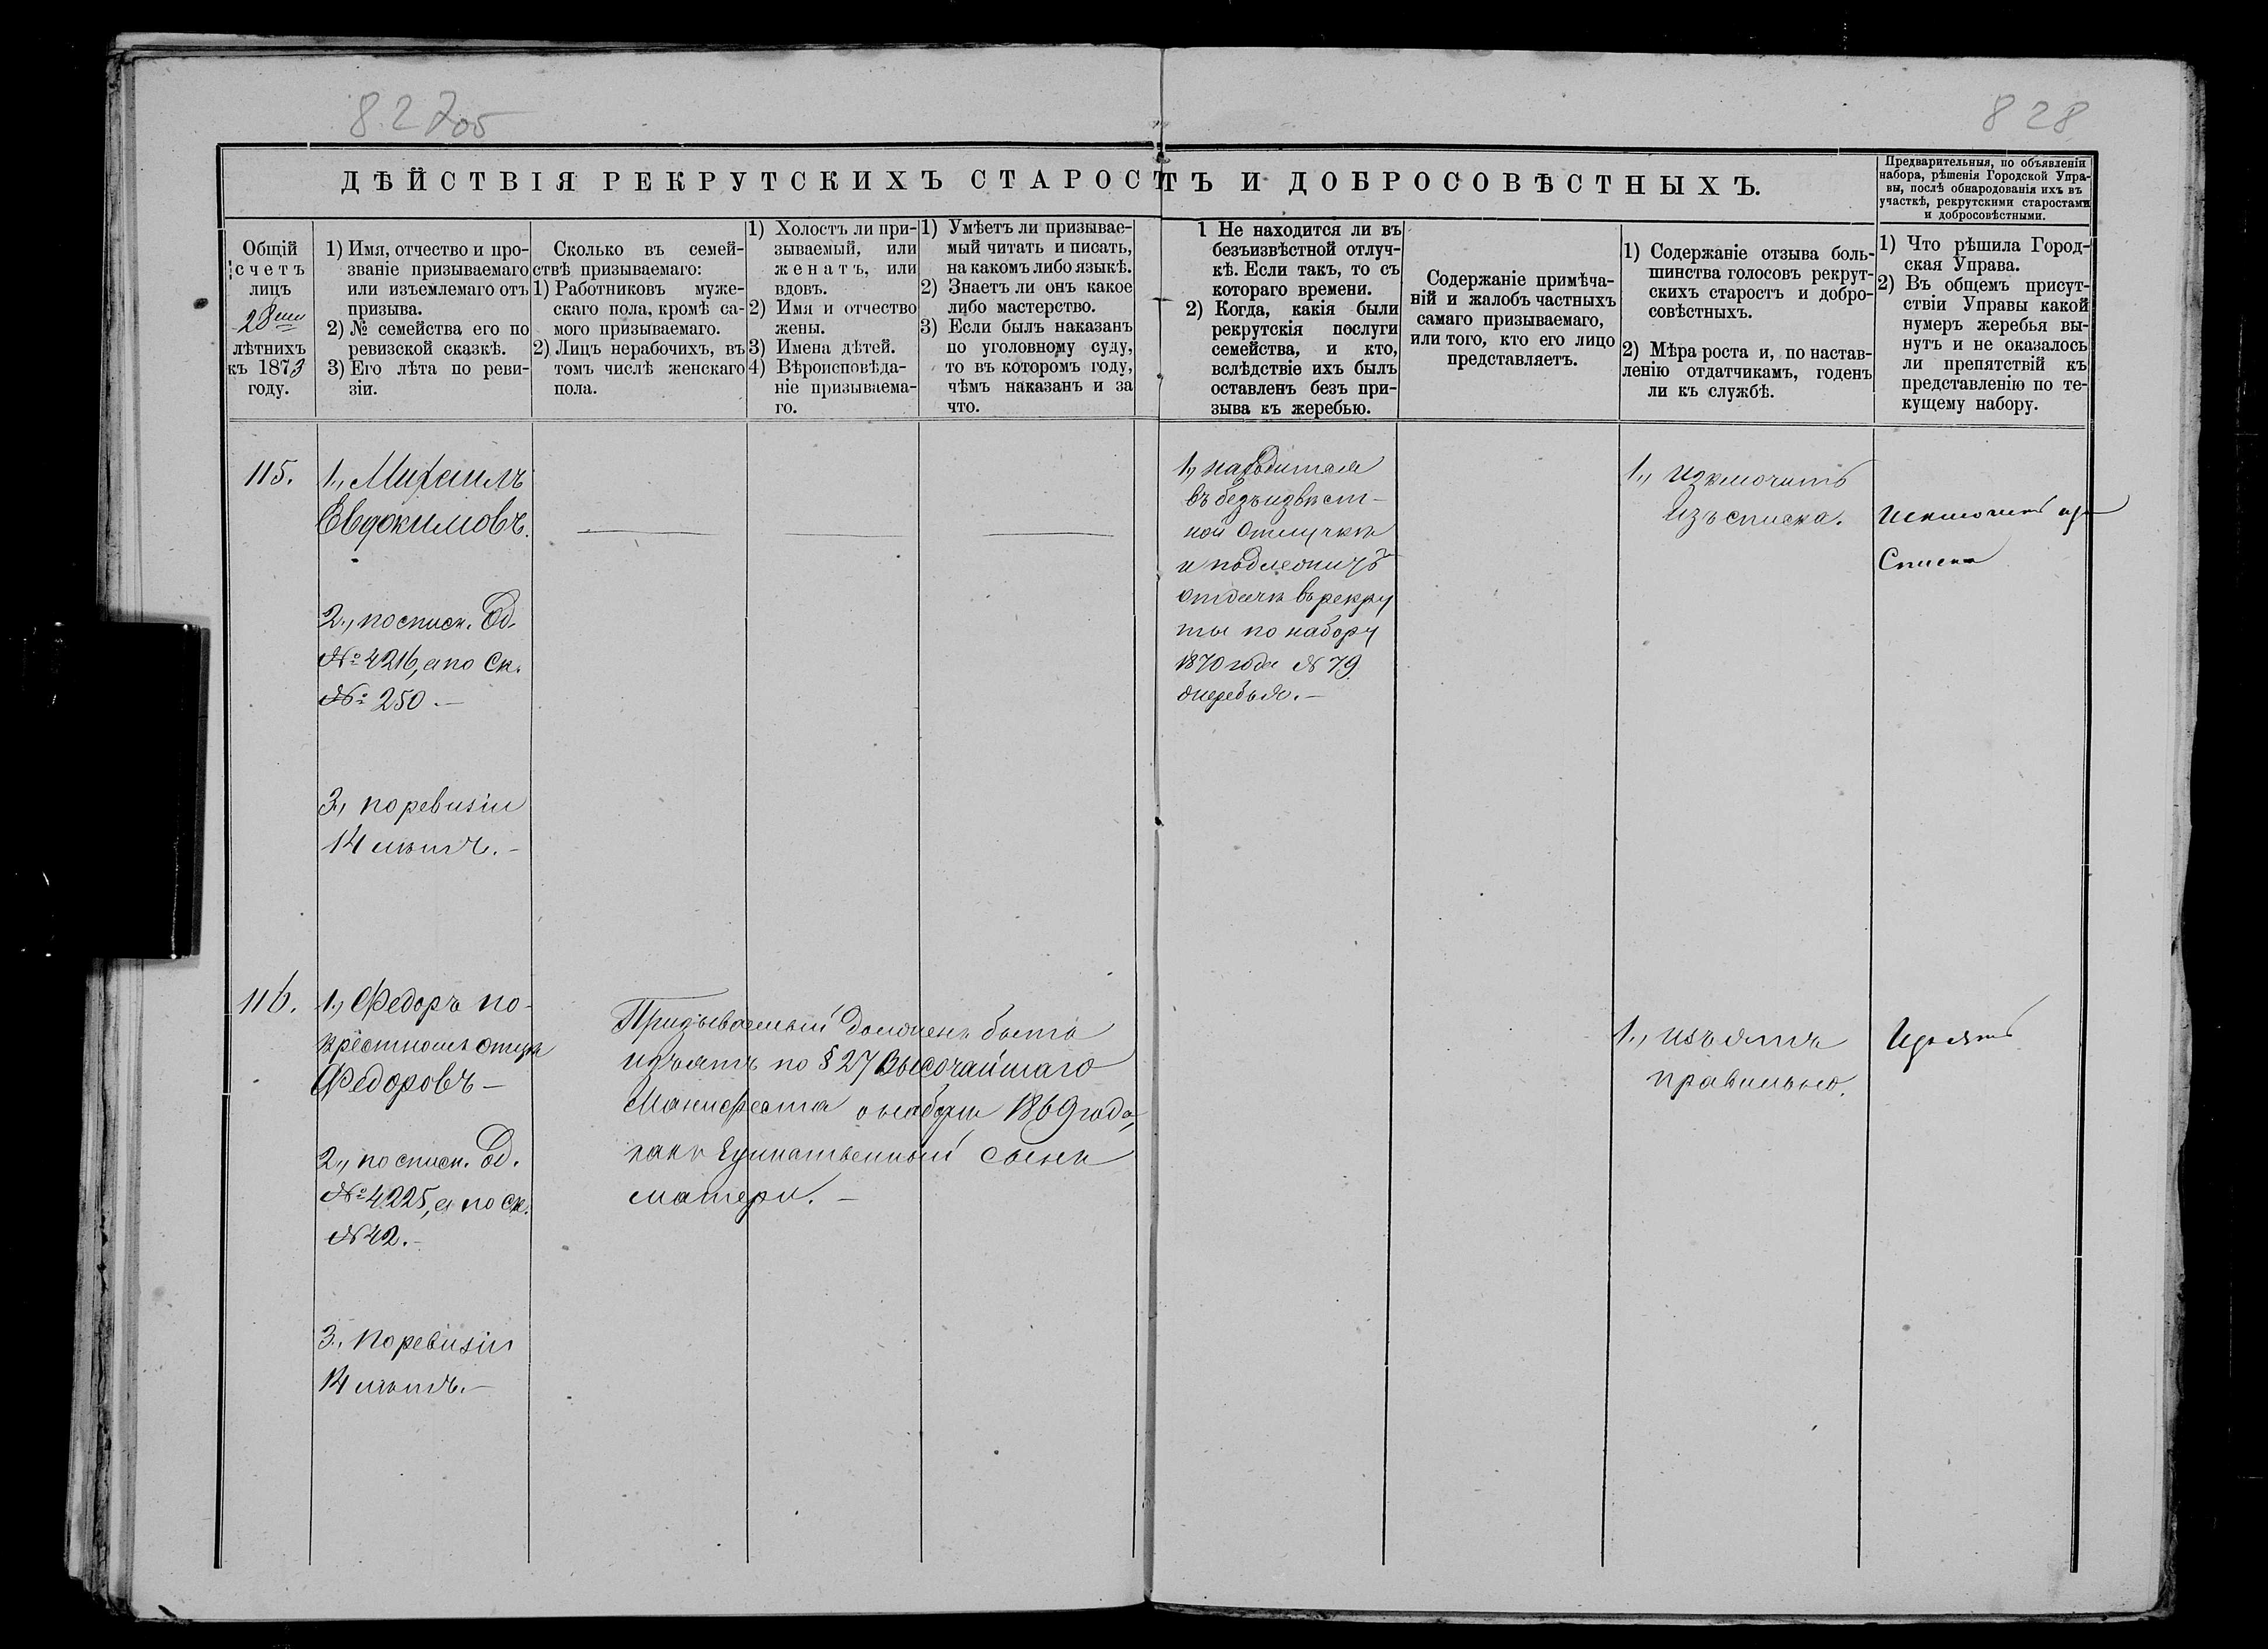 827об
828
ДѢЙСТВІЯ РЕКРУТСКИХЪ СТАРОСТЪ И ДОБРОСОВѢСТНЫХЪ.
Предварительныя, по объявленіи
набора, рѣшенія Городской Упра-
вы, послѣ обнародованія ихъ въ
участкѣ, рекрутскими старостами
и добросовѣстными.
Общій
счетъ
лицъ
28ми
лѣтнихъ
къ 1873
году.
1) Имя, отчество и про-
званіе призываемаго
или изъемлемаго отъ
призыва.
2) № семейства его по
ревизской сказкѣ.
3) Его лѣта по реви-
зіи.
Сколько въ семей-
ствѣ призываемаго:
1) Работниковъ муже-
скаго пола, кромѣ са-
мого призываемаго.
2) Лицъ нерабочихъ, въ
томъ числѣ женскаго
пола.
1) Холостъ ли при-
зываемый, или
женатъ, или
вдовъ.
2) Имя и отчество
жены.
3) Имена дѣтей.
4) Вѣроисповѣда-
ніе призываема-
го.
1) Умѣетъ ли призывае-
мый читать и писать,
на какомъ либо языкѣ.
2) Знаетъ ли онъ какое
либо мастерство.
3) Если былъ наказанъ
по уголовному суду,
то въ которомъ году,
чѣмъ наказанъ и за
что.
1 Не находится ли въ
безъизвѣстной отлуч-
кѣ. Если такъ, то съ
котораго времени.
2) Когда, какія были
рекрутскія послуги
семейства, и кто,
вслѣдствіе ихъ былъ
оставленъ безъ при-
зыва къ жеребью.
Содержаніе примѣча-
ній и жалобъ частныхъ
самаго призываемаго,
или того, кто его лицо
представляетъ.
1) Содержаніе отзыва боль-
шинства голосовъ рекрут-
скихъ старостъ и добро-
совѣстныхъ.
2) Мѣра роста и, по настав-
ленію отдатчикамъ, годенъ
ли къ службѣ.
1) Что рѣшила Город-
ская Управа.
2) Въ общемъ присут-
ствіи Управы какой
нумеръ жеребья вы-
нутъ и не оказалось
ли препятствій къ
представленію по те-
кущему набору.
115.
1., Михаилъ
Евдокимовъ.
2., по списк. Од.
№ 4216, а по ск.
№ 250.—
3., по ревизіи
14 лѣтъ.—
1., находится
въ безъизвѣст-
ной отлучкѣ
и подлежитъ
отдачѣ въ рекру
ты по набору
1870 года № 79
жеребья.—
1., изключить
изъ списка.
Исключить изъ
Списка
116.
1., Федоръ по-
крестному отцу
Федоровъ—
2., по списк. Од.
№ 4225, а по ск.
№ 42.—
3., по ревизіи
14 лѣтъ.—
Призываемый долженъ быть
изъятъ по § 27 Высочайшаго
Манифеста о наборѣ 1869 года,
какъ единственный сынъ
матери.—
1., изъятъ
правильно.
Изъять